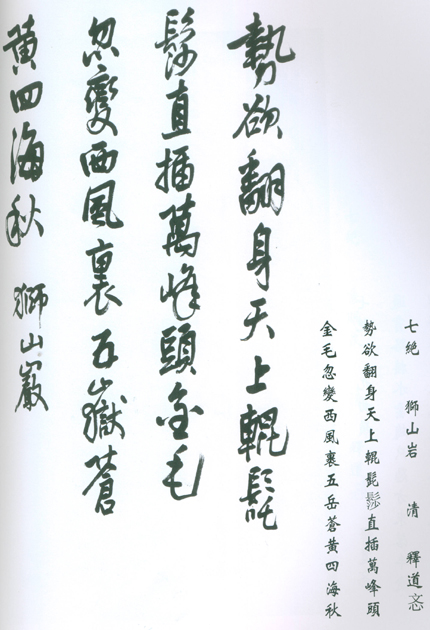 七絕　獅山岩　清　釋道忞
勢欲翻身天上輥髭髿直插萬峰頭
金毛忽變西風裏五岳蒼黃四海秋
勢欲翻身天上輥髭
髿直插萬峰頭金毛
忽變西風裏五嶽蒼
黃四海秋　獅山巖